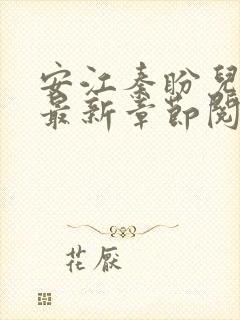 安江秦盼兒
最新章節閱
花厭